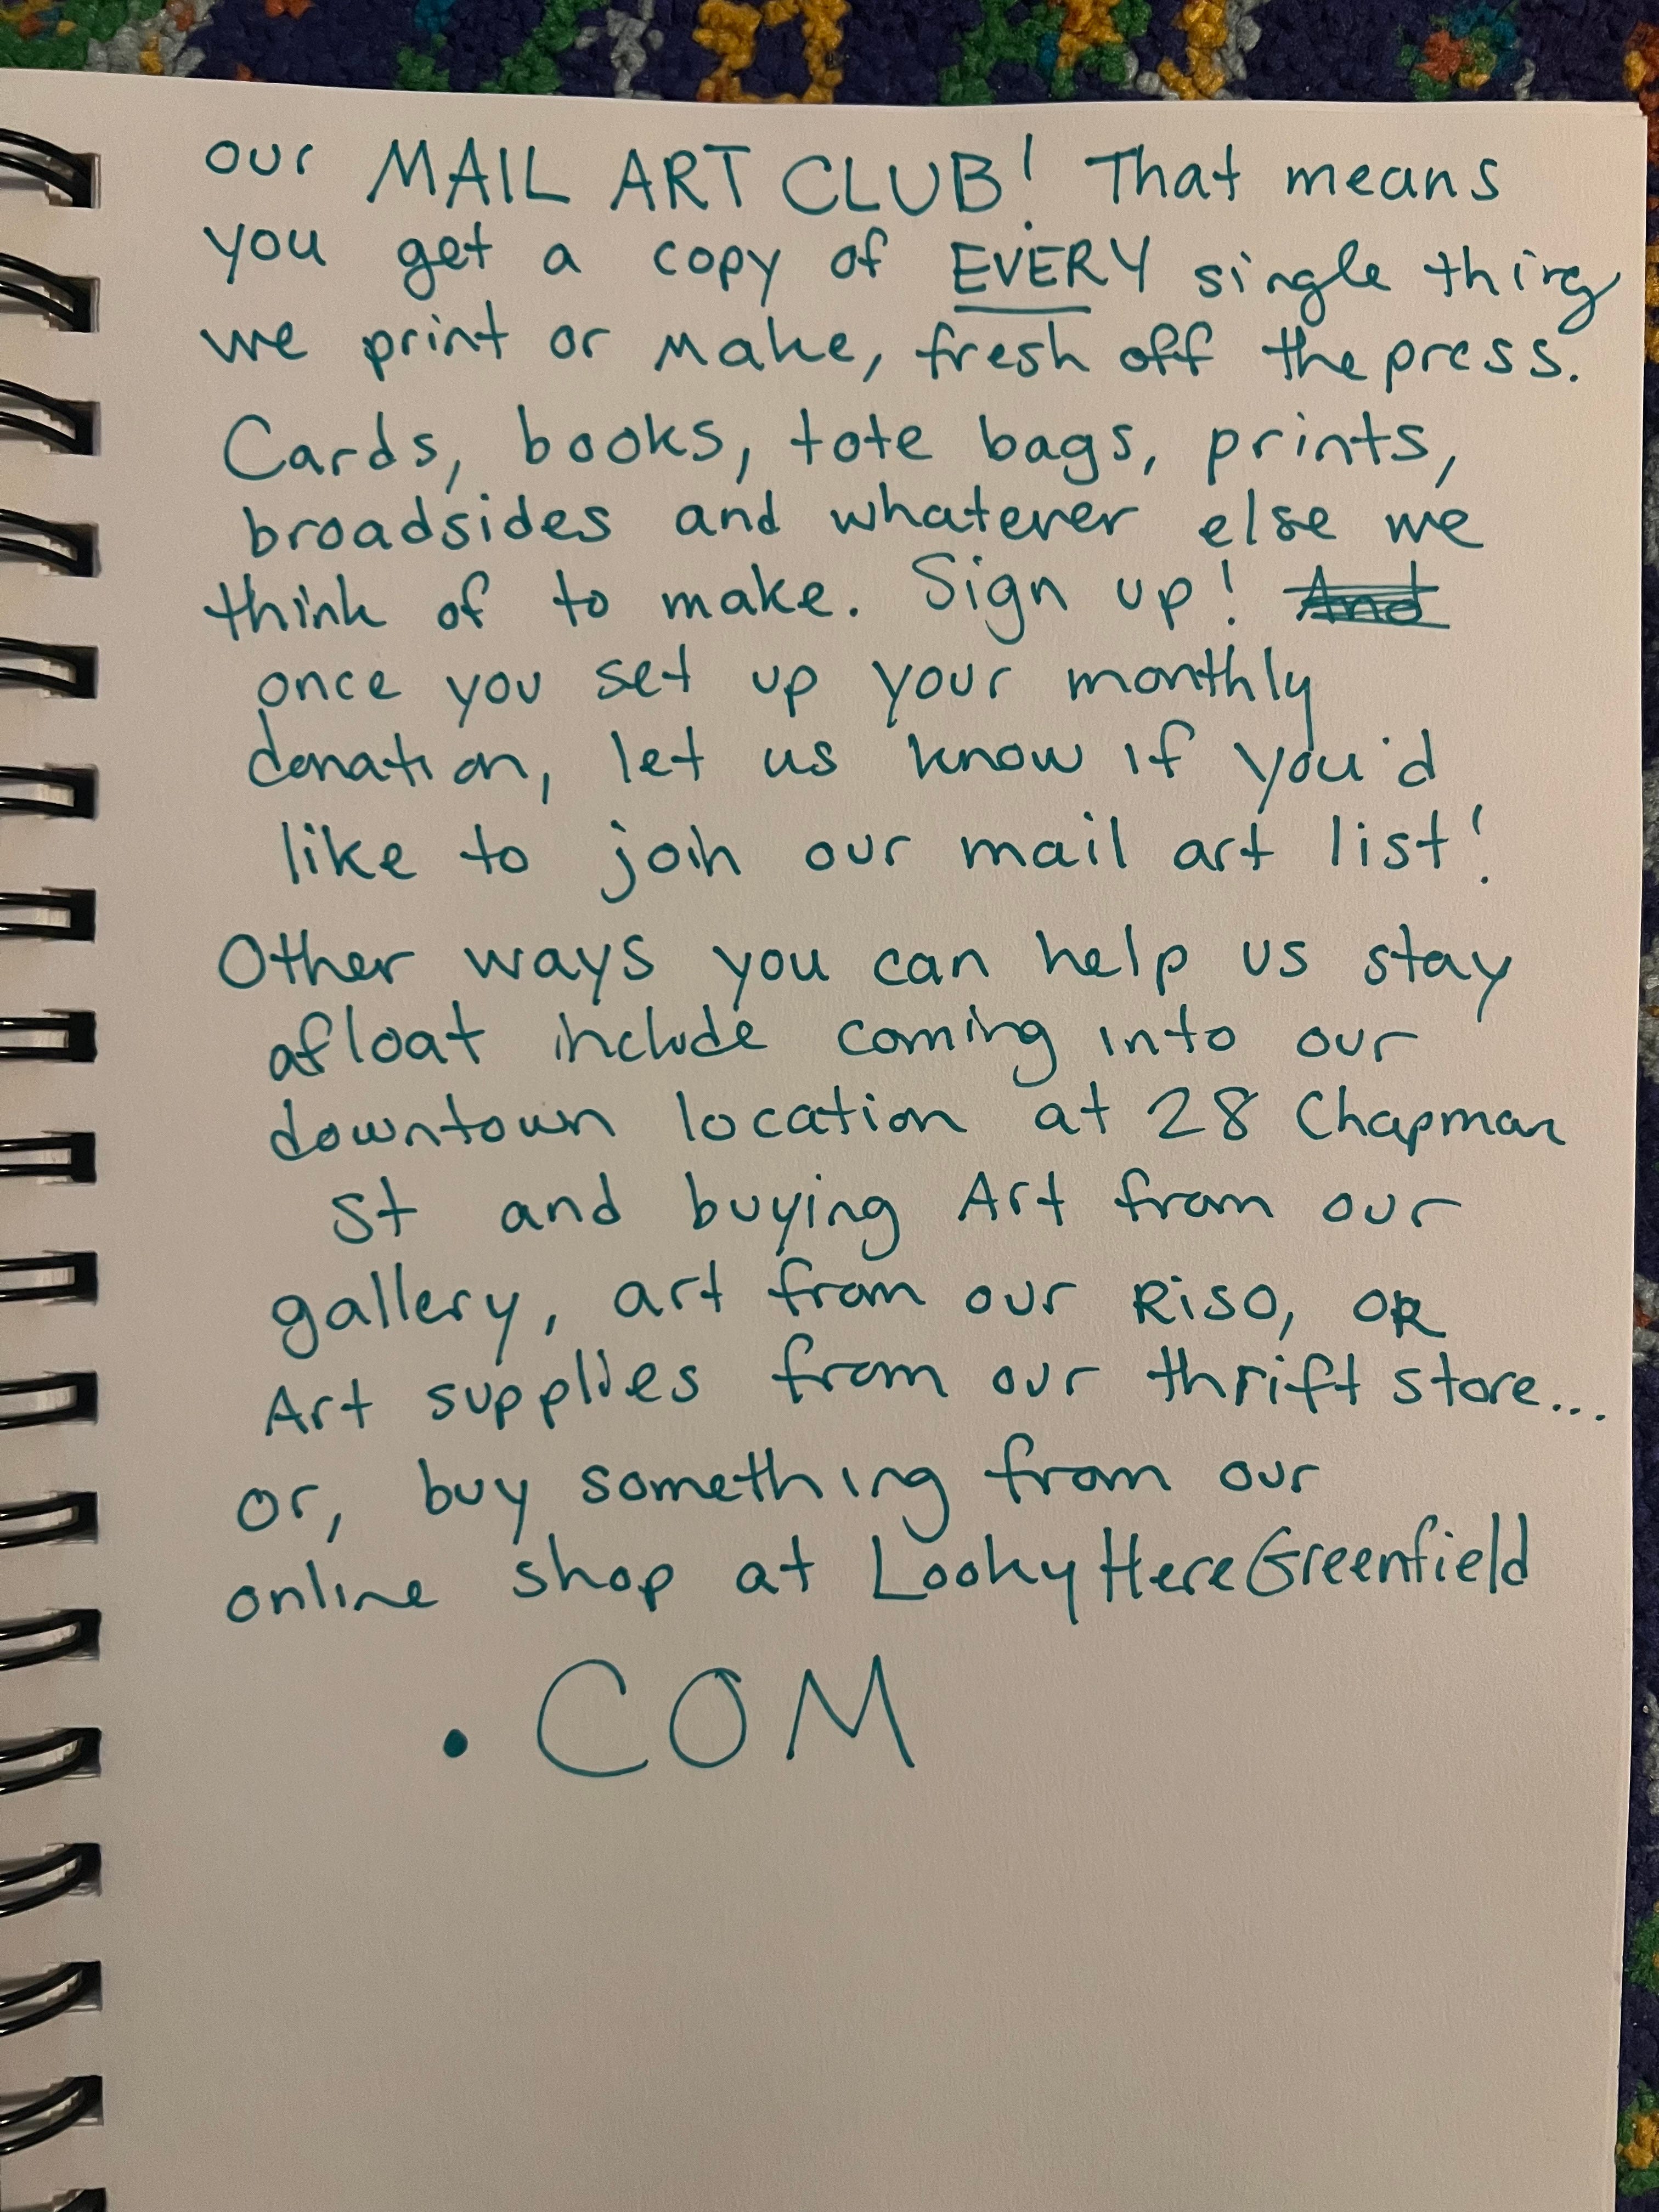 our MAIL ART CLUB! That means
you get a copy of EVERY single thing
we print or make, fresh off the press.
Cards, books, tote bags, prints,
broadsides and whatever else we
think of to make. Sign up! And
once you set up your monthly
donation, let us know if you'd
like to join our mail art list!
Other ways you can help us stay
afloat include coming into our
downtown location at 28 Chapman
St and buying Art from our
gallery, art from our RISO, OR
Art supplies from our thrift store...
or, buy something from our
online shop at LookyHereGreenfield
.COM